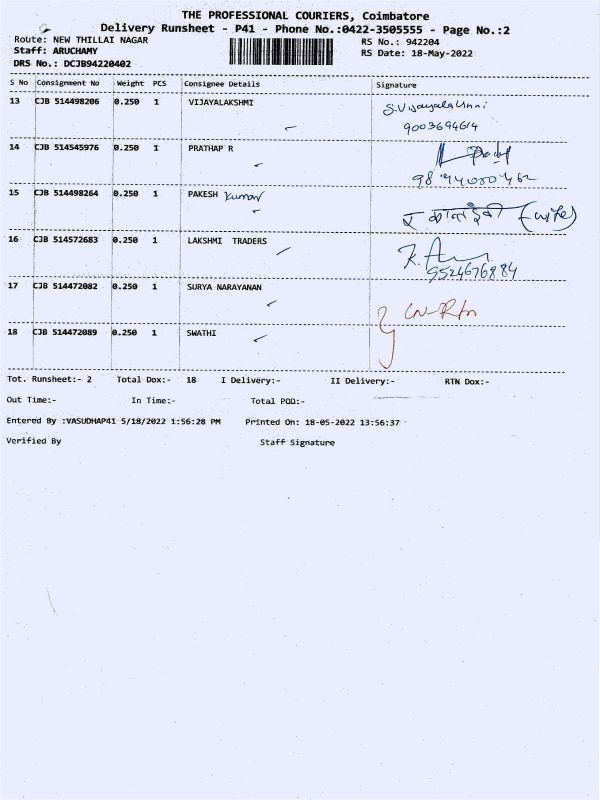 THE PROFESSIONAL COURIERS, Coimbatore
Delivery Runsheet - P41 - Phone No.:0422-3505555 - Page No.:2
Route: NEW THILLAI NAGAR
RS No.: 942204
Staff: ARUCHAMY
RS Date: 18-May-2022
DRS No.: DCJB94220402
S No Consignment No Weight PCS Consignee Details Signature
13 CJB 514498206 0.250 1 VIJAYALAKSHMI S.Vijayalakshmi
9003694614
14 CJB 514545976 0.250 1 PRATHAP R
15 CJB 514498264 0.250 1 PAKESH Kumar (wife)
16 CJB 514572683 0.250 1 LAKSHMI TRADERS
9524676884
17 CJB 514472082 0.250 1 SURYA NARAYANAN
18 CJB 514472089 0.250 1 SWATHI
Tot. Runsheet:- 2 Total Dox:- 18 I Delivery:- II Delivery:- RTN Dox:-
Out Time:- In Time:- Total POD:-
Entered By :VASUDHAP41 5/18/2022 1:56:28 PM Printed On: 18-05-2022 13:56:37
Verified By Staff Signature